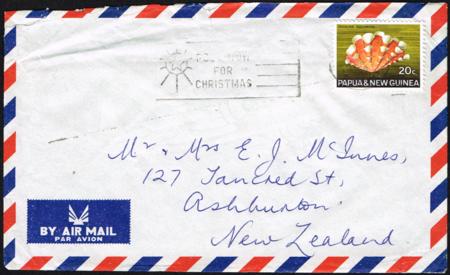 FOR
CHRISTMAS
20c
PAPUA & NEW GUINEA
Mr & Mrs E. J. McInnes,
127 Tancred St,
Ashburton
New Zealand
BY AIR MAIL
PAR AVION